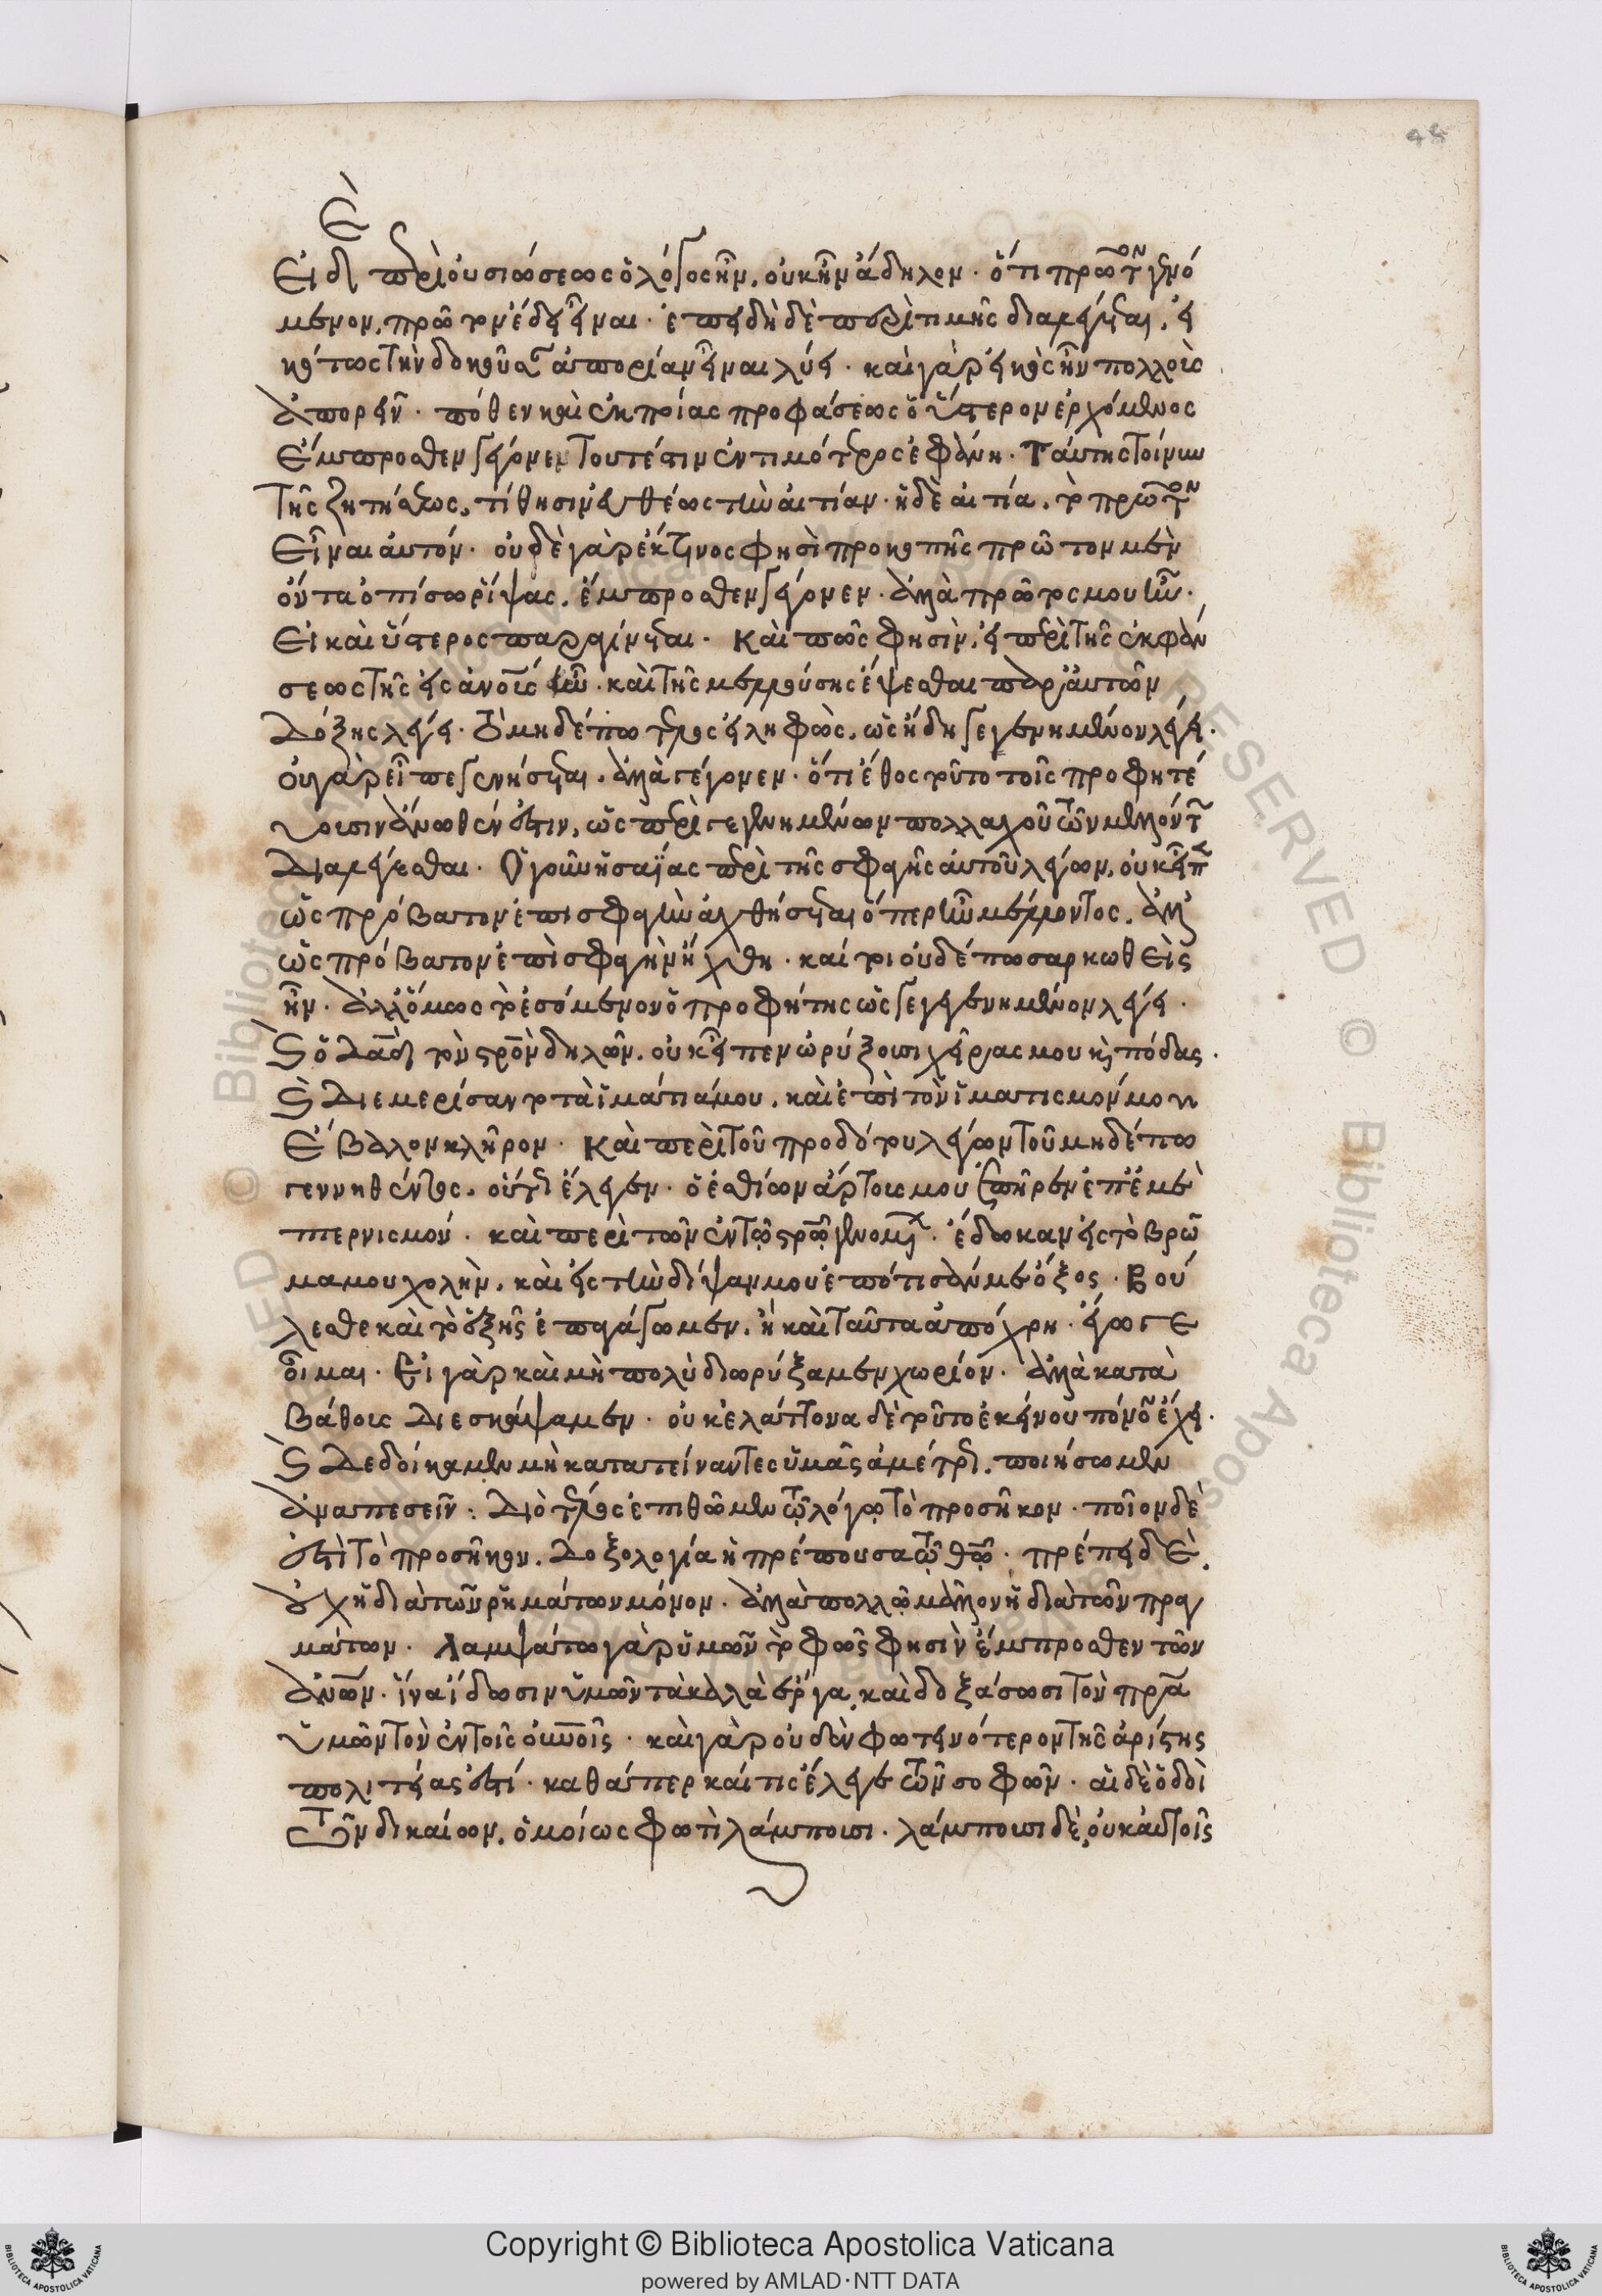 44
Εἰ δὲ περὶ οὐσιώσεως ὁ λόγος ἦν, οὐκ ἦν ἄδηλον· ὅτι πρῶτον γενό
μενον, πρῶτον ἔδει εἶναι· ἐπειδὴ δὲ περὶ τιμῆς διαλέγεται, εἰ
κότως τὴν δοκοῦσαν ἀπορίαν εἶναι λύει· καὶ γὰρ εἰκὸς ἦν πολλοὺς
ἀπορεῖν· πόθεν καὶ ἐκ ποίας προφάσεως ὁ ὕστερον ἐρχόμενος
ἔμπροσθεν γέγονεν τουτέστιν ἐντιμότερος ἐφάνη· Ταύτης τοίνυν
τῆς ζητήσεως, τίθησιν εὐθέως τὴν αἰτίαν· ἡ δὲ αἰτία, τὸ πρῶτον
εἶναι αὐτόν· οὐδὲ γὰρ ἔκ τινος φησὶ προκοπῆς πρῶτον μὲν
ὄντα ὀπίσω ῥίψας, ἔμπροσθεν γέγονεν· ἀλλὰ πρῶτός μου ἦν·
εἰ καὶ ὕστερος παραγίνεται· Καὶ πῶς φησὶν, εἰ περὶ τῆς ἐκφάν
σεως τῆς εἰς ἀνους ἦν· καὶ τῆς μελλούσης ἕψεσθαι παρ' αὐτῶν
δόξης λέγει· τὸ μηδέπω τέλος εἰληφὸς, ὡς ἤδη γεγενημένον λέγει·
οὐ γὰρ εἶπε γενήσεται, ἀλλὰ γέγονεν· ὅτι ἔθος τοῦτο τοῖς προφητεύ
ουσιν ἄνωθεν ἐστιν, ὡς περὶ γεγενημένων πολλαχοῦ τῶν μελλόντων
διαλέγεσθαι· Ὁ γοῦν ἡσαΐας περὶ τῆς σφαγῆς αὐτοῦ λέγων, οὐκ εἶπεν
ὡς πρόβατον ἐπὶ σφαγὴν ἀχθήσεται ὅπερ ἦν μέλλοντος, ἀλλ'
ὡς πρόβατον ἐπὶ σφαγὴν ἤχθη· καί τοι οὐδέπω σαρκωθεὶς
ἦν· ἀλλ' ὅμως τὸ ἐσόμενον ὁ προφήτης ὡς γεγενημένον λέγει·
καὶ ὁ δαδ τὸν στρον δηλῶν, οὐκ εἶπεν ὀρύξουσι χεῖρας μου καὶ πόδας·
καὶ διεμερίσαντο τὰ ἱμάτιά μου, καὶ ἐπὶ τὸν ἱματισμόν μου
ἔβαλον κλῆρον· Καὶ περὶ τοῦ προδότου λέγων τοῦ μηδέπω
γεννηθέντος, οὕτω ἔλεγεν· ὁ ἐσθίων ἄρτους μου ἐπῆρεν ἐπ' ἐμὲ
πτερνισμόν· καὶ περὶ τῶν ἐν τῷ στρῷ γενομένων· ἔδωκαν εἰς τὸ βρῶ
μα μου χολὴν, καὶ εἰς τὴν δίψαν μου ἐπότισάν με ὄξος· Βού
λεσθε καὶ τὸ ἑξῆς ἐπαγάγωμεν, ἢ καὶ ταῦτα ἀπόχρη· ἔγωγε
οἶμαι· Εἰ γὰρ καὶ μὴ πολὺ διωρύξαμεν χωρίον· ἀλλὰ κατὰ
βάθους διεσκάψαμεν· οὐκ ἐλάττονα δὲ τοῦτο ἐκείνου πόνον ἔχει·
καὶ δεδοίκαμεν μὴ κατατείναντες ὑμᾶς ἀμέτρως, ποιήσωμεν
ἀναπεσεῖν: Διὸ τέλος ἐπιθῶμεν τῷ λόγῳ τὸ προσῆκον· ποῖον δὲ
ἐστὶ τὸ προσῆκον, δοξολογία ἡ πρέπουσα τῷ θῷ· πρέπει δὲ,
οὐχ ἡ διὰ τῶν ῥημάτων μόνον· ἀλλὰ πολλῷ μᾶλλον ἡ διὰ τῶν πραγ
μάτων· Λαμψάτω γὰρ ὑμῶν τὸ φῶς φησὶν ἔμπροσθεν τῶν
ἀνων· ἵνα ἴδωσιν ὑμῶν τὰ καλὰ ἔργα, καὶ δοξάσωσι τὸν πρα
ὑμῶν τὸν ἐν τοῖς οὐνοῖς· καὶ γὰρ οὐδὲν φωτεινότερον τῆς ἀρίστης
πολιτείας ἐστί· καθάπερ καί τις ἔλεγε τῶν σοφῶν· αἱ δὲ ὁδοὶ
τῶν δικαίων, ὁμοίως φωτὶ λάμπουσι· λάμπουσι δὲ, οὐκ αὐτοῖς
Copyright © Biblioteca Apostolica Vaticana
powered by AMLAD·NTT DATA